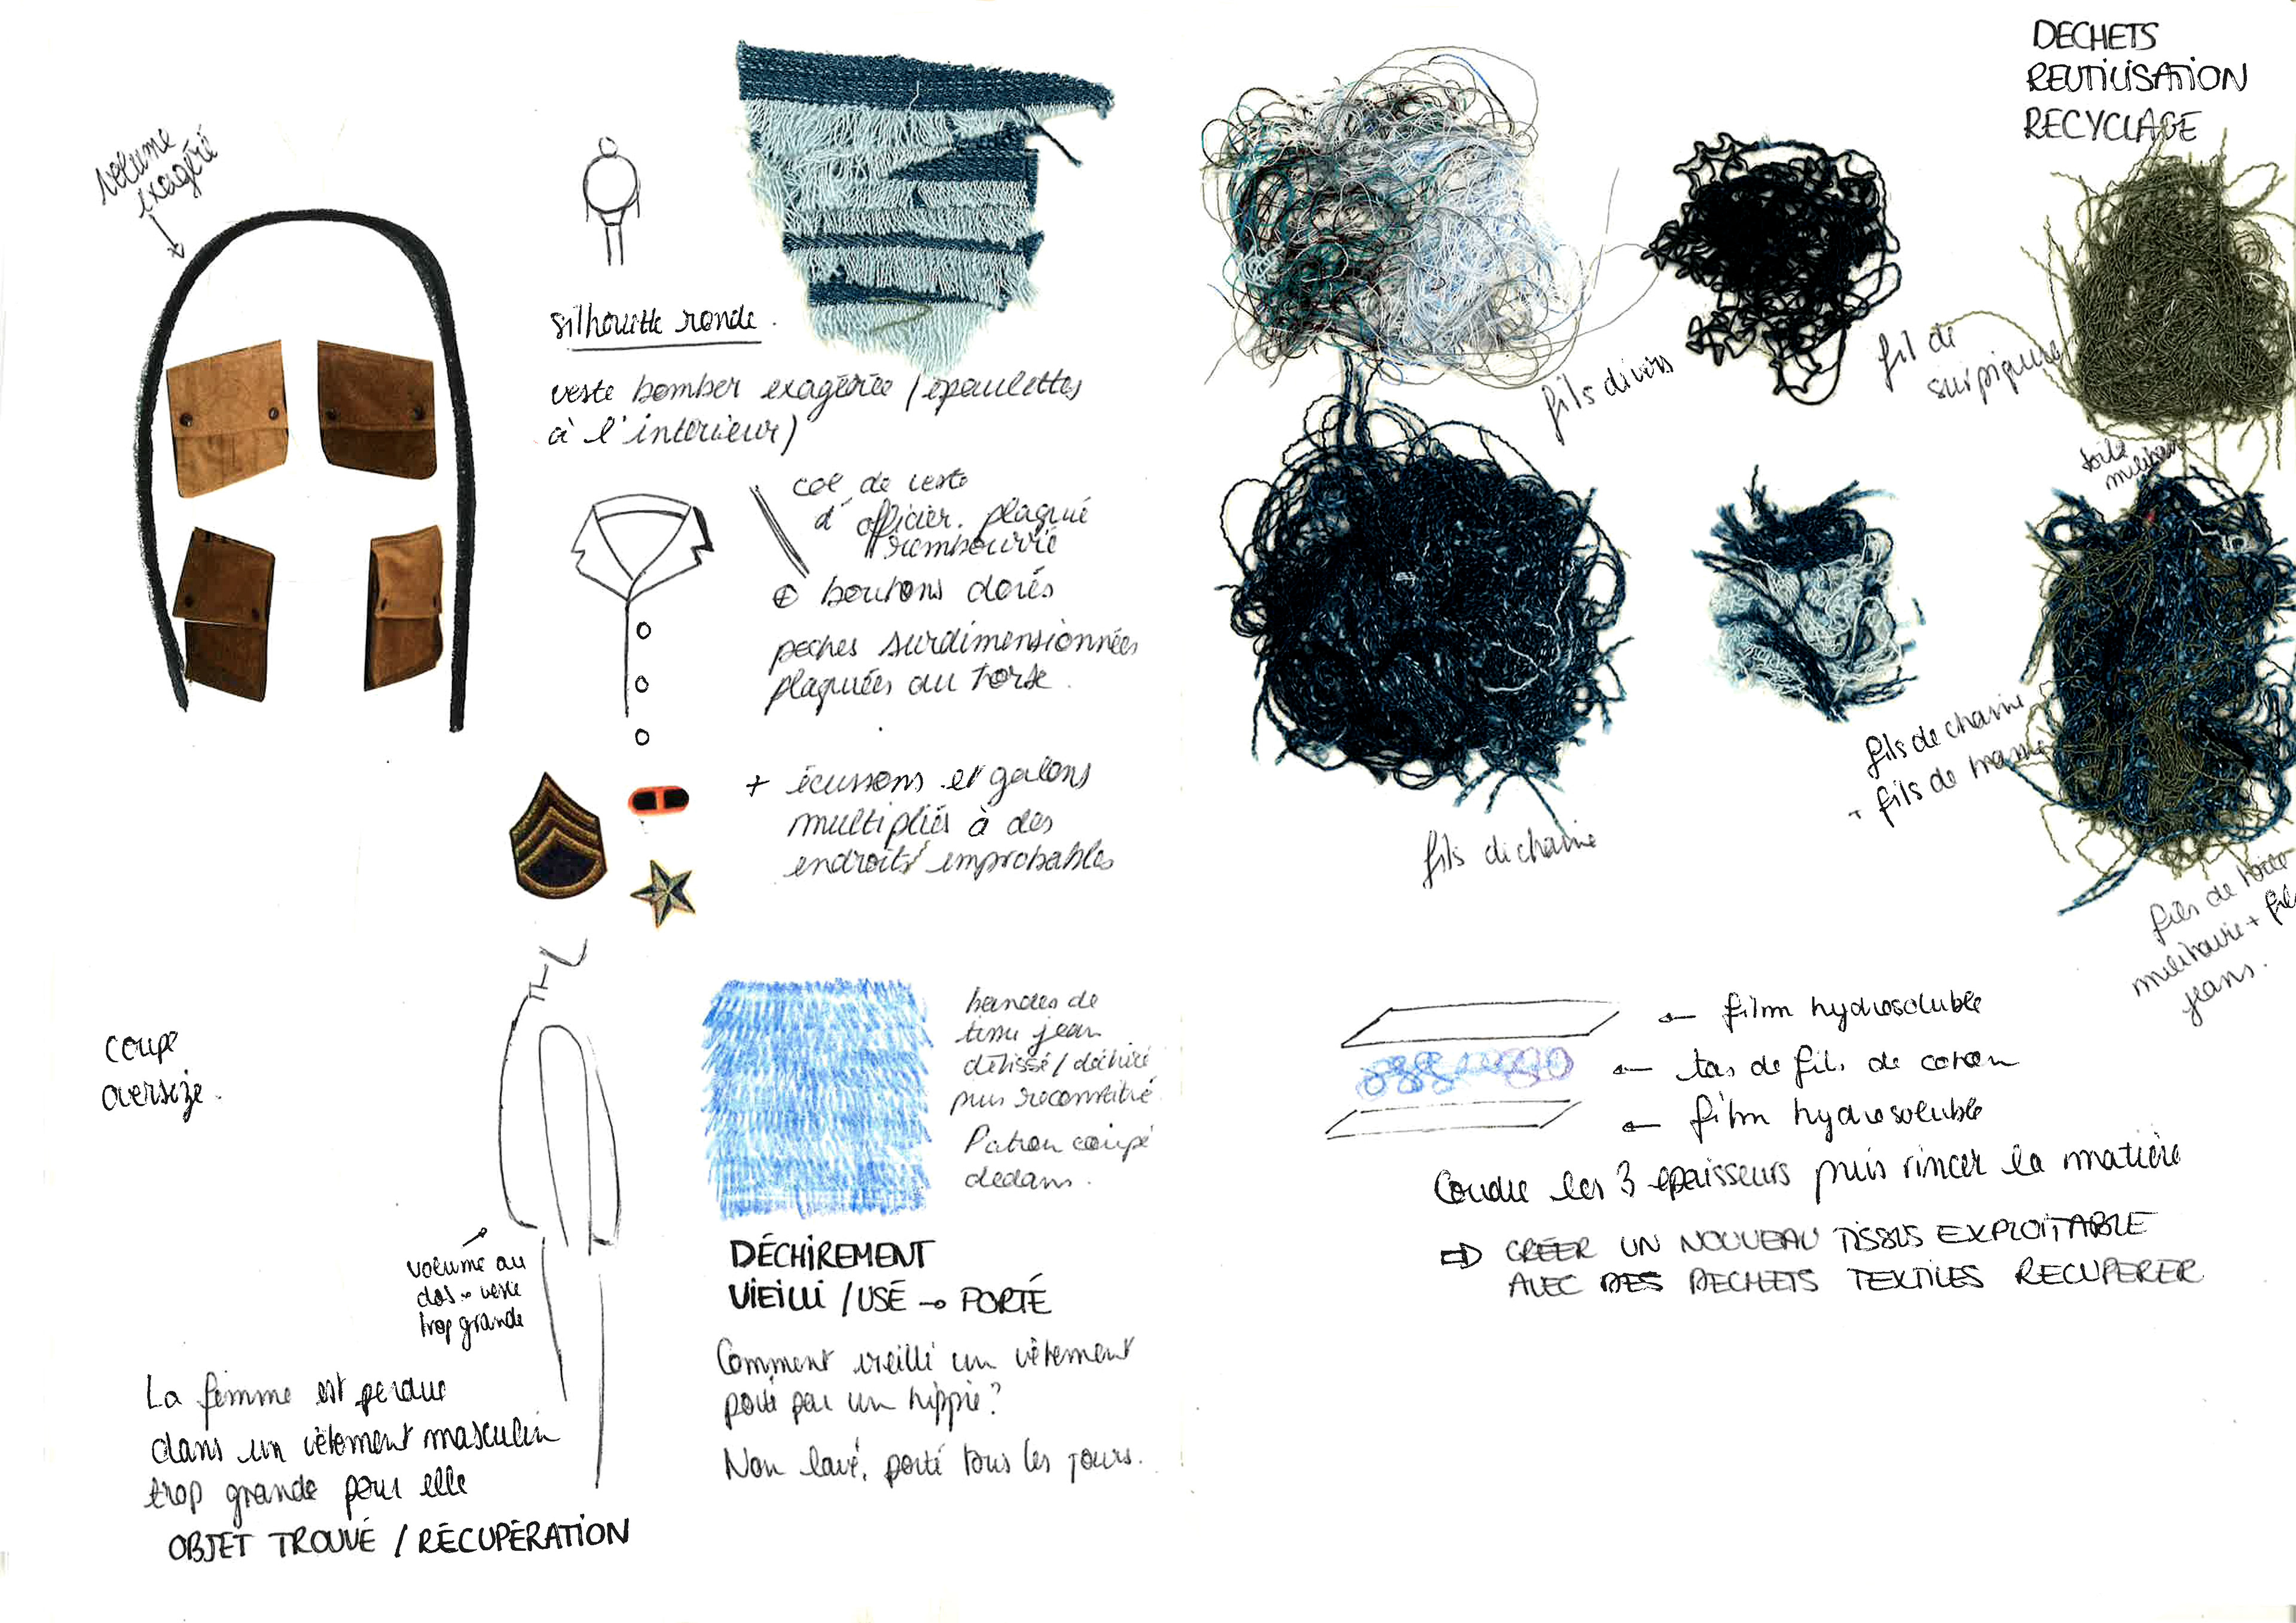 volume
exagéré
silhouette ronde.
veste bomber exagérée (épaulettes
à l'intérieur)
col de veste
d'officier. plaqué
rembourré
⊕ boutons dorés
poches surdimensionnées
plaquées au torse.
+ écussons et galons
multipliés à des
endroits improbables
coupe
oversize.
volume au
dos → veste
trop grande
La femme est perdue
dans un vêtement masculin
trop grande pour elle
OBJET TROUVÉ / RÉCUPÉRATION
bandes de
tissu jean
détissé / déchiré
puis reconstitué.
Patron coupé
dedans.
DÉCHIREMENT
VIEILLI / USÉ → PORTÉ
Comment vieilli un vêtement
porté par un hippie?
Non lavé, porté tous les jours.
DECHETS
REUTILISATION
RECYCLAGE
fils divers
fil de
surpiqure
toile
militaire
fils de chaine
fils de chaine
+ fils de trame
fils de toile
militaire + fil
jeans.
← film hydrosoluble
← tas de fils de coton
← film hydrosoluble
Coudre les 3 épaisseurs puis rincer la matière
⇨ CRÉER UN NOUVEAU TISSUS EXPLOITABLE
AVEC DES DECHETS TEXTILES RECUPERER